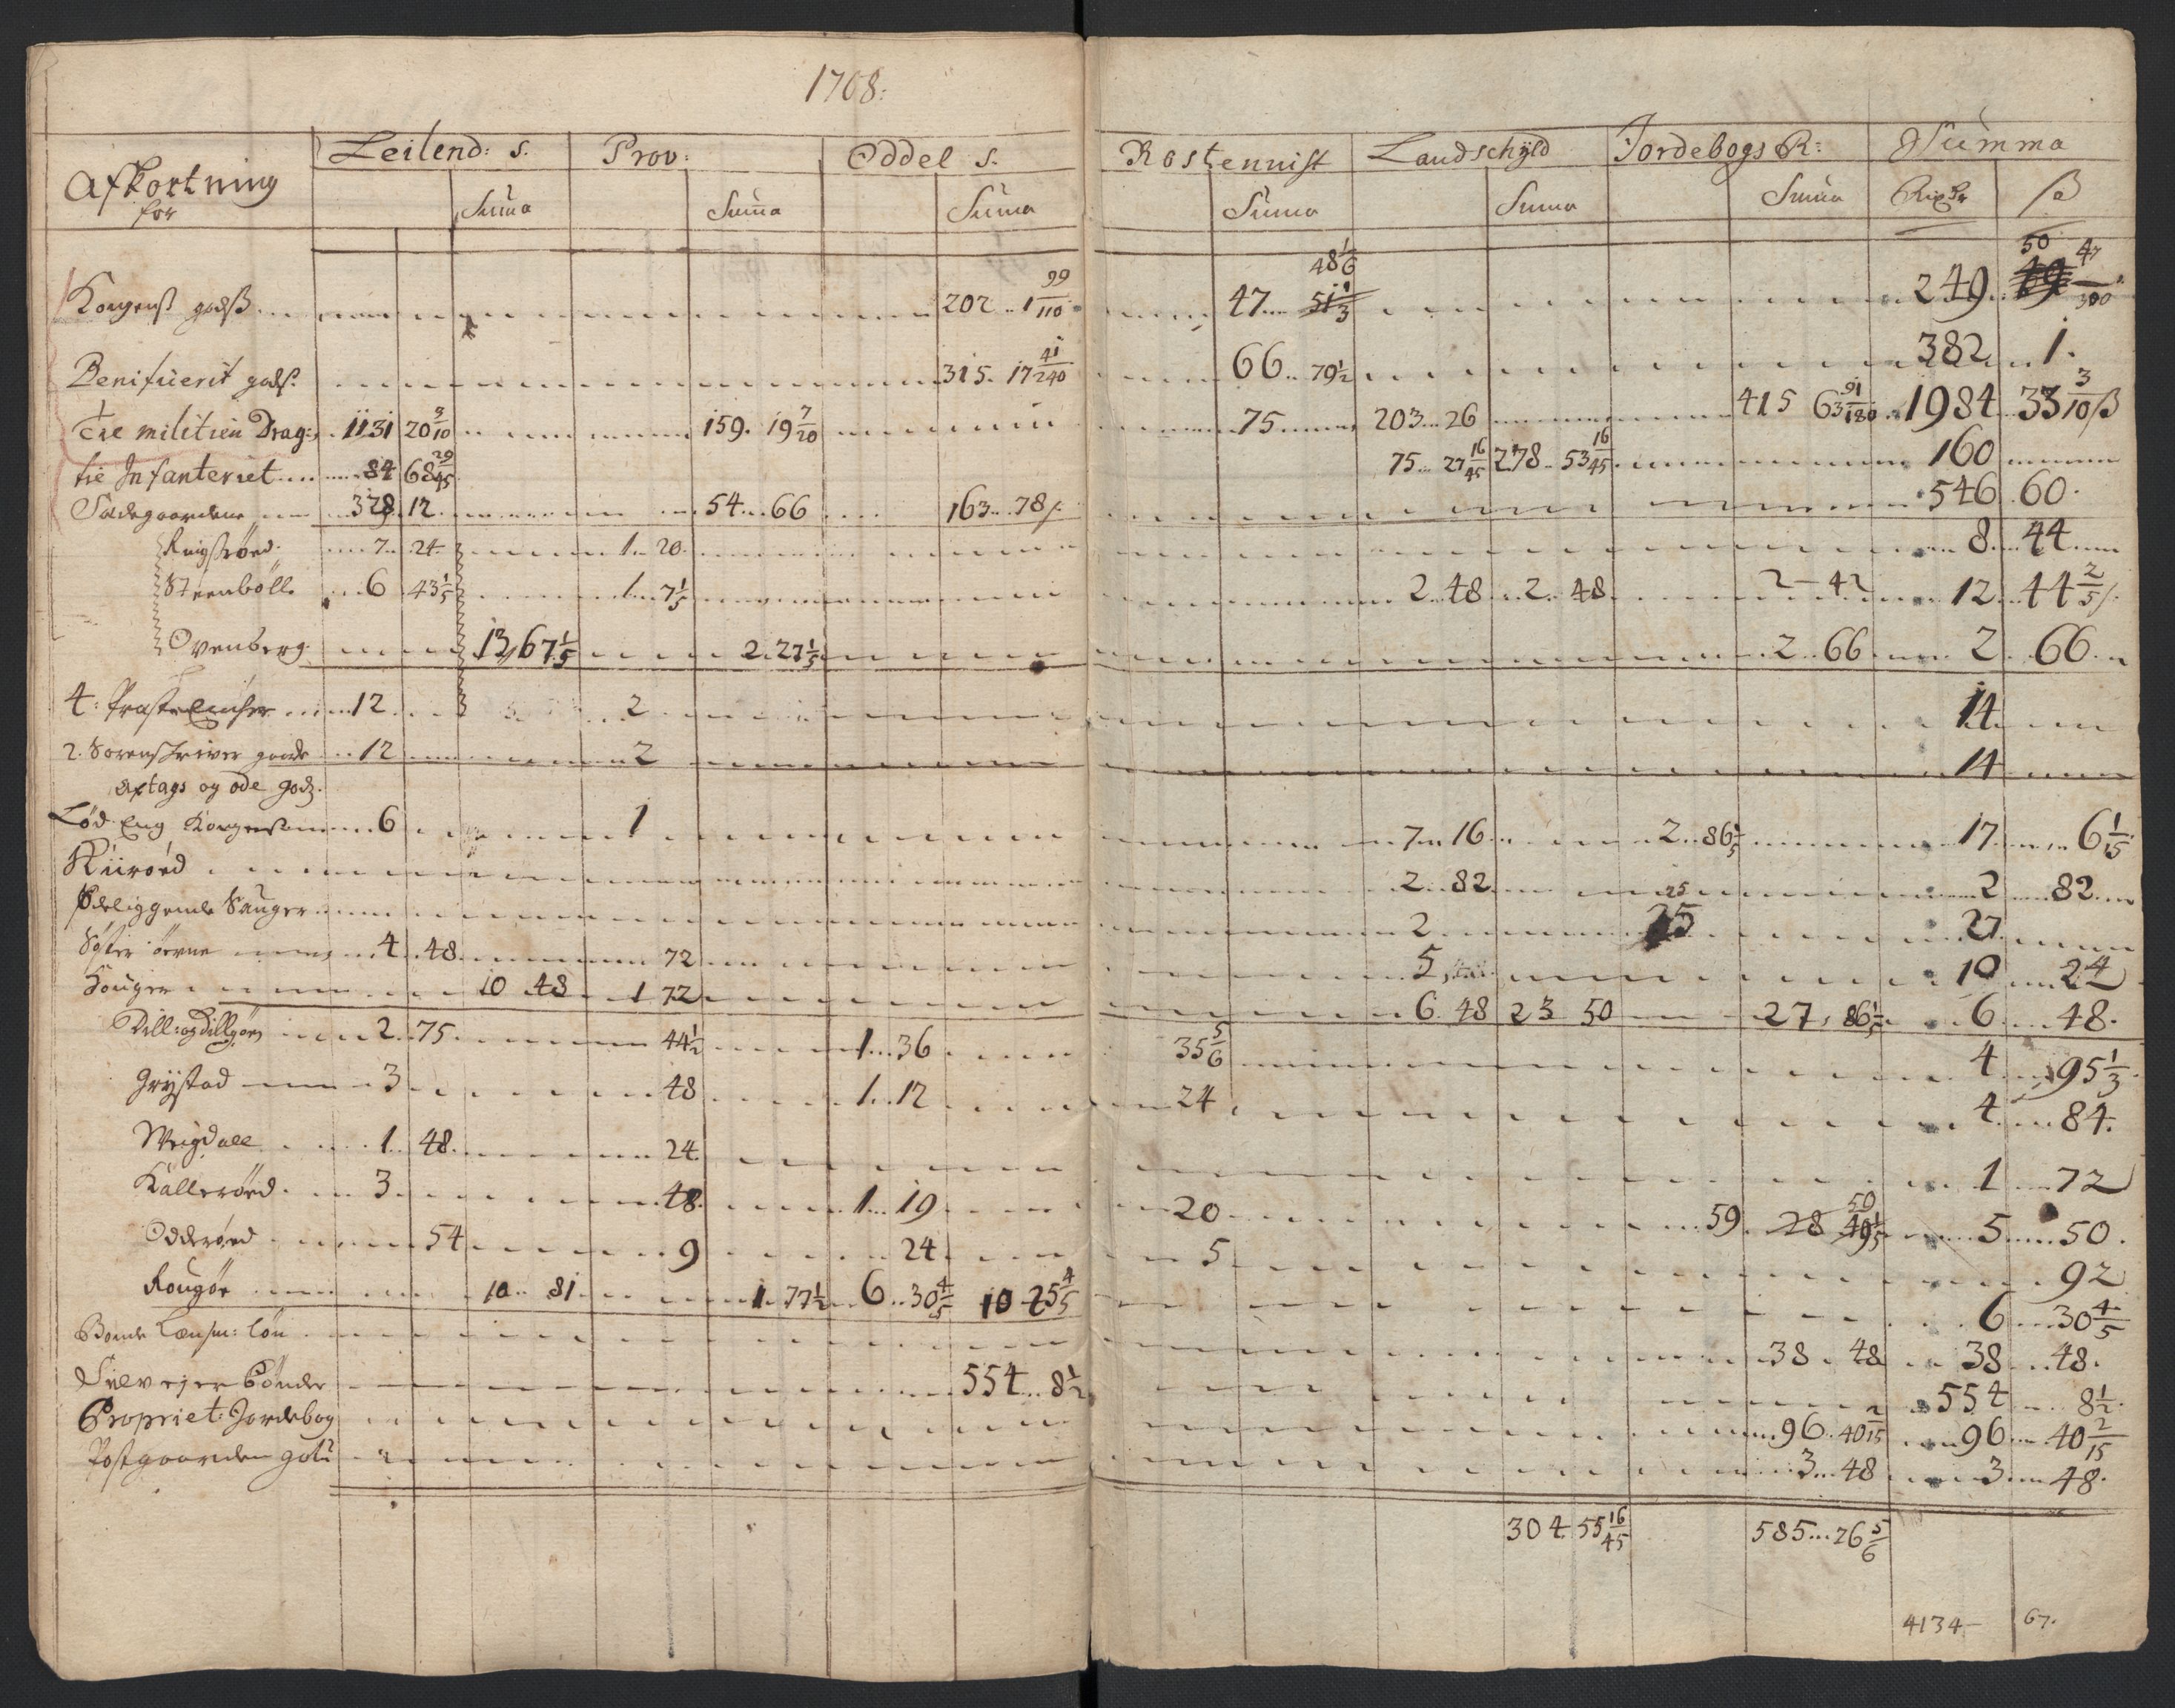 1708:
Afkortning for | Leilend: s. | Summa | Prov: | Summa | Oddel s. | Summa | Rostennist | Summa | Landschÿld | Summa | Jordebogs R: | Summa | Summa Rixdr | ß
Kongens godß ... 202 .. 1 99/110 | 47 ... 51 1/3 48 1/6 | 249 .. 49 50 47/300
Benificerit gods: ... 315. 17 41/240 | 66 .. 79 1/2 | 382 .. 1.
til militien Drag: 1131 20 3/10 | 159. 19 7/20 | 75 | 203 .. 26 | 415 63 91/180 | 1984 .. 33 3/10 ß
til Infanteriet .... 84 68 29/45 | 75 .. 27 16/45 | 278 .. 53 16/45 | 160
Sædegaardene 328. 12. | 54 ... 66 | 163 ... 78 | 546. 60.
7 .. 24. | 1 .. 20. | 8 .. 44
Steenbölle 6. 43 1/5 | 1 .. 7 1/5 | 2. 48 | 2. 48 | 2 - 42 | 12 .. 44 2/5
Ovenberg. | 13, 67 1/5 | 2. 27 1/5 | 2 .. 66 | 2 .. 66
4: Præste ... 12 | 2 | 14
2. Sorenskriver gaarde 12 | 2 | 14
aftags og öde godz.
Löd. Eng 6 | 1 | 7 .. 16 | 2 .. 86 1/5 | 17 ... 6 1/15
Kiiröed | 2. 82 | 2 .. 82
Ödeliggende Sauger | 2 | 25 25 | 27
4. 48. | 72 | 5 | 10 .. 24
Souger | 10 48 | 1 72 | 6. 48 | 23 50 | 27, 86 1/5 | 6 .. 48.
Dill: og Dillöen 2. 75. | 44 1/2 | 1 ... 36 | 35 5/6 | 4 .. 95 1/3
Grÿstad 3. | 48 | 1 .. 12 | 24 | 4 .. 84.
Weigdall 1. 48. | 24. | 1 .. 72
Källeröed 3 | 48. | 1 ... 19 | 20 | 59. 28 49 1/5 50 | 5 .. 50.
Odderöed 54 | 9 | 24. | 5 | 92
Rougöe | 10 .. 81 | 1. 77 1/2 | 6 .. 30 4/5 | 10 25 4/5 | 6 ... 30 4/5
Bonde Lænsm: lön | 38. 48 | 38 .. 48.
Selvejer Bönder | 554 ... 8 1/2 | 554 ... 8 1/2.
Propriet: Jordebog | 96. 40 2/15 | 96 .. 40 2/15
Postgaarden | 3 .. 48 | 3 .. 48.
304. 55 16/45 | 585 ... 26 5/6
4134 - 67.